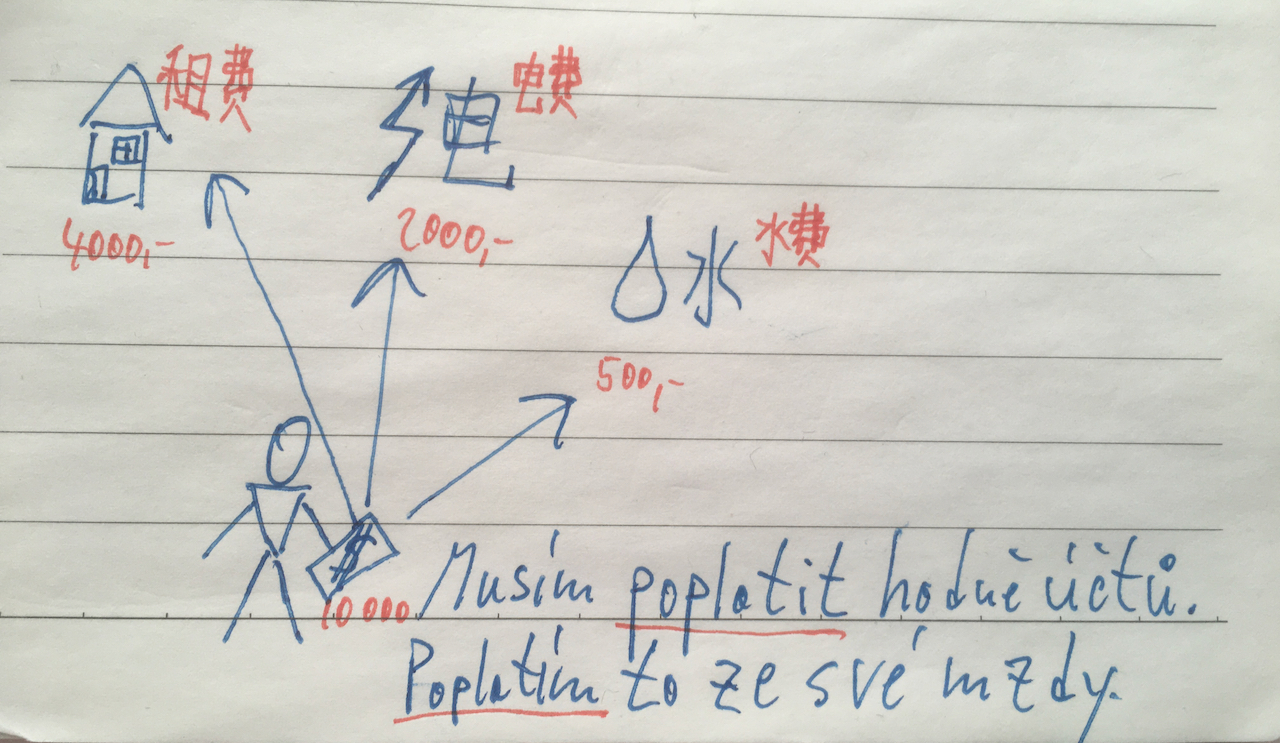 租费
电 电费
4000,-
2000,-
水 水费
500,-
$
10 000
Musím poplatit hodně účtů.
Poplatím to ze své mzdy.